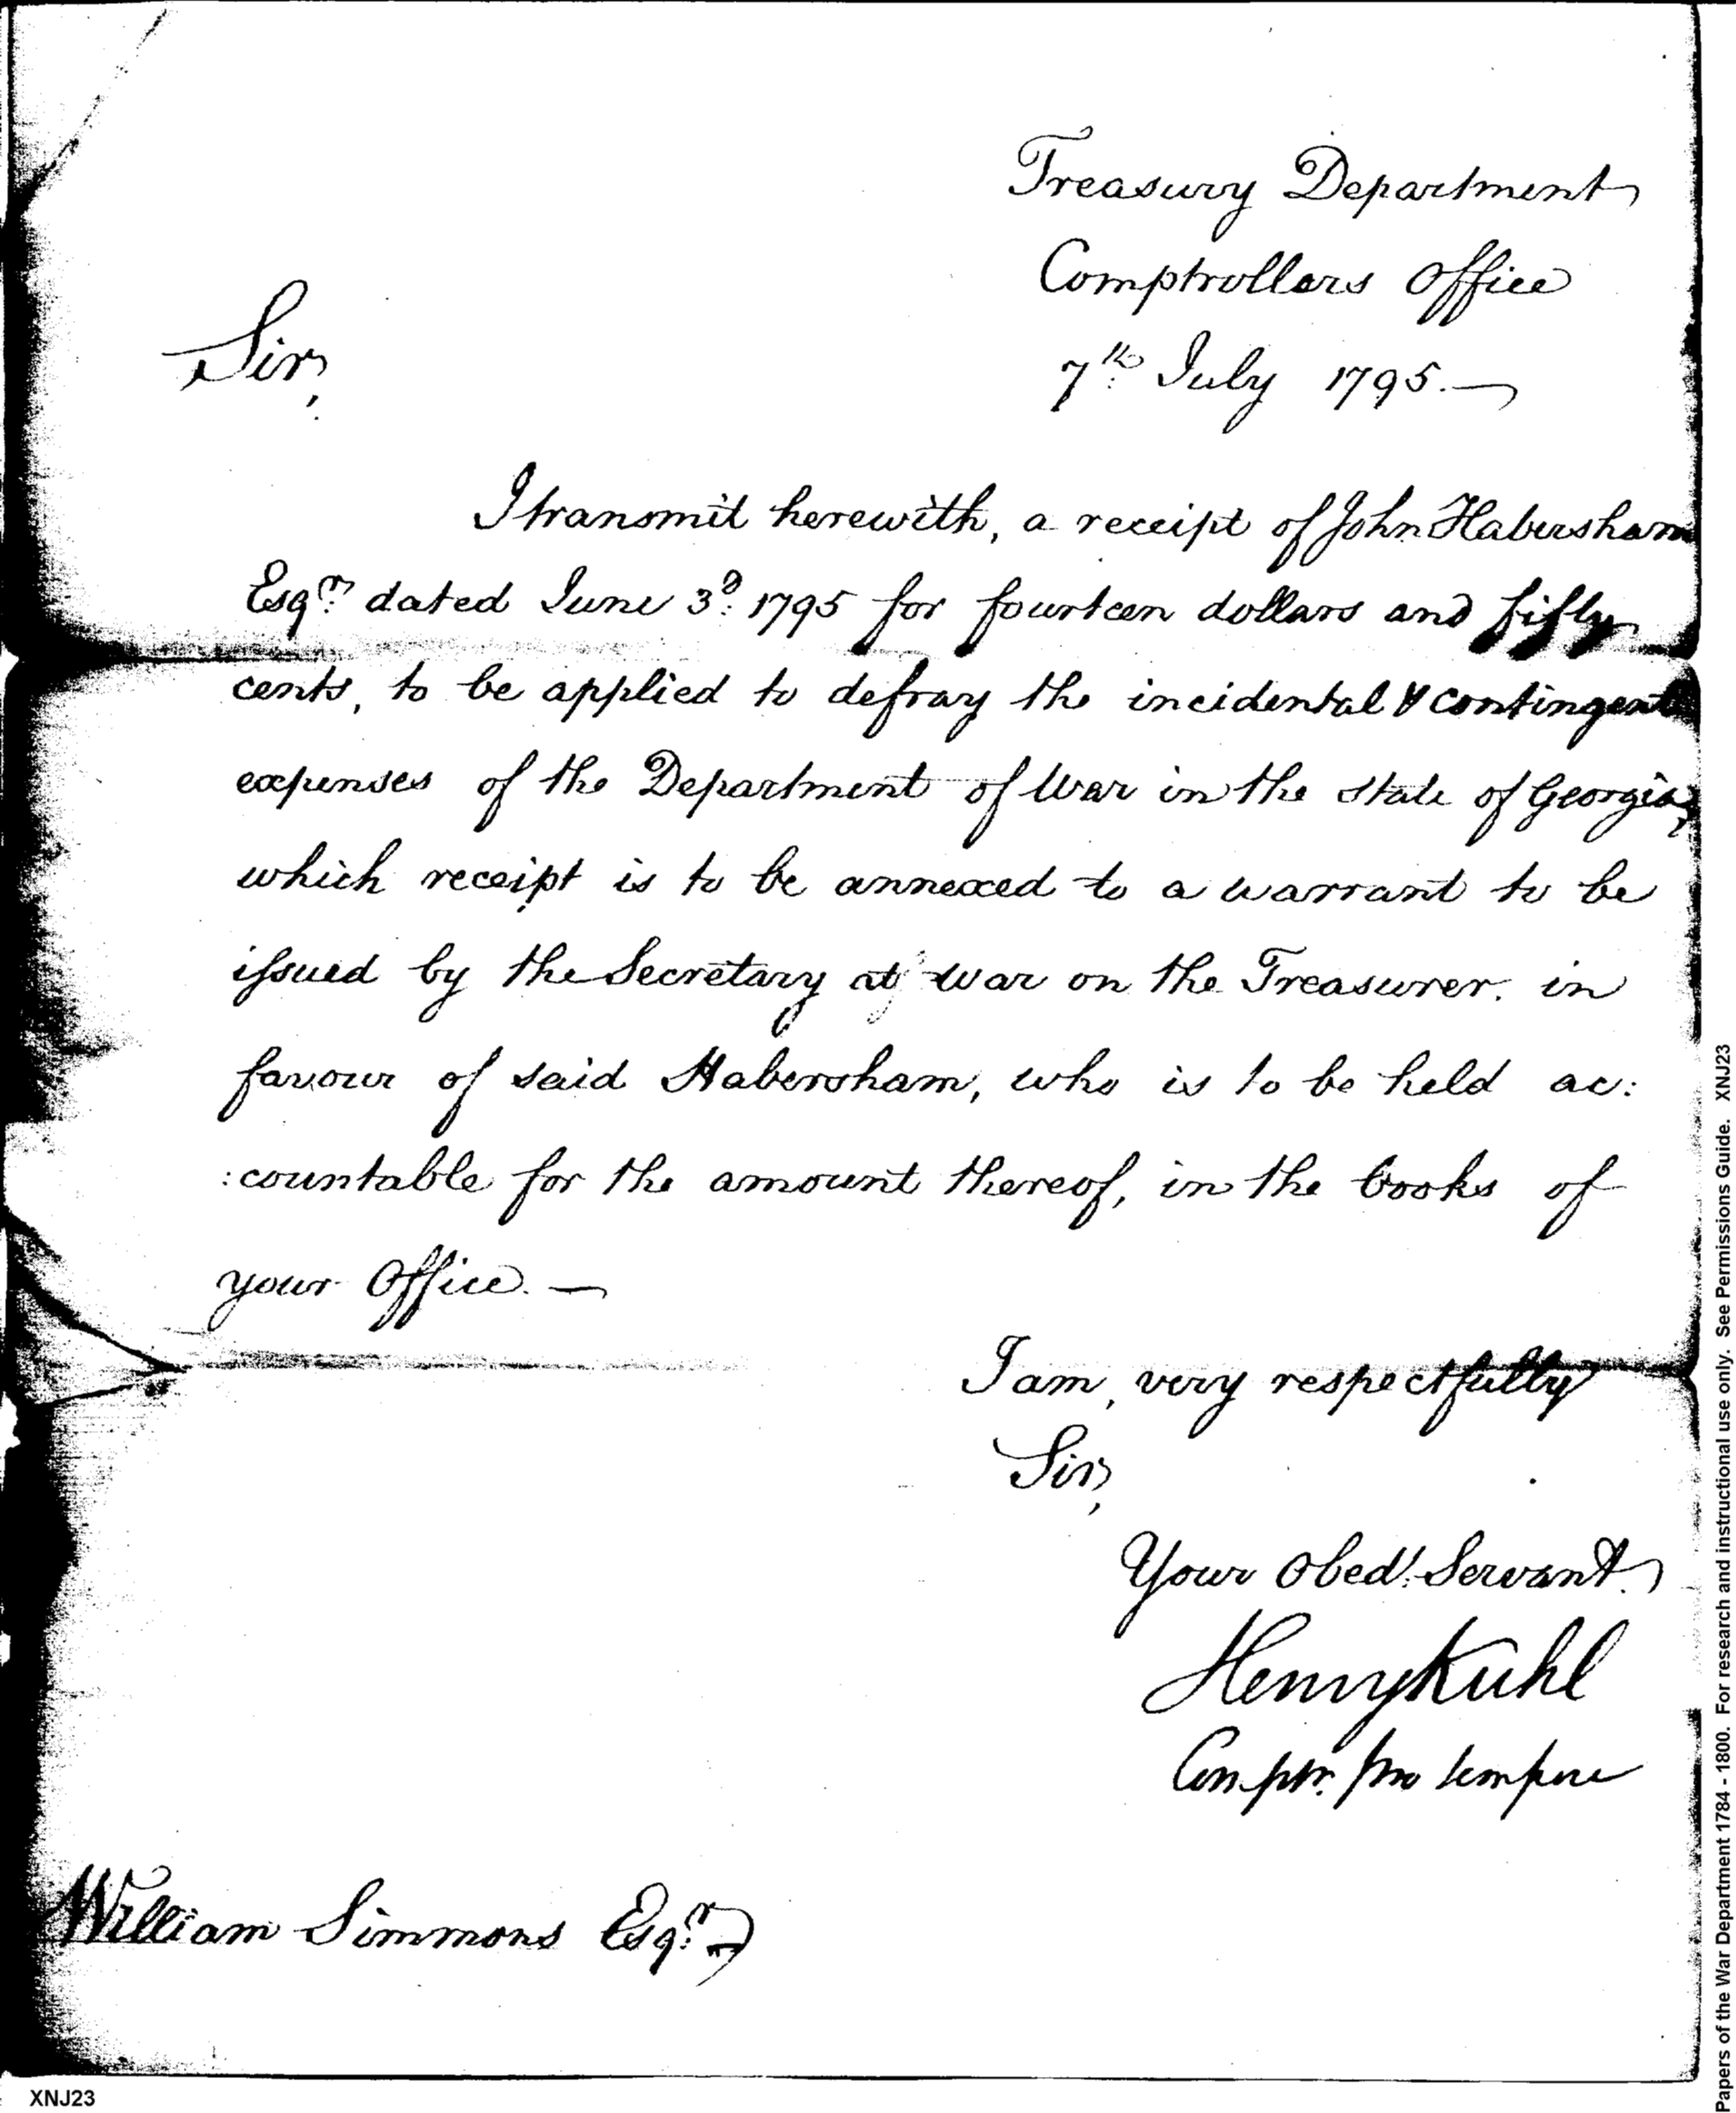 Treasury Department
Comptrollers Office
7th. July 1795.—
Sir,
I transmit herewith, a receipt of John Habersham
Esqr. dated June 3d. 1795 for fourteen dollars and fifty
cents, to be applied to defray the incidental & contingent
expenses of the Department of War in the State of Georgia,
which receipt is to be annexed to a warrant to be
issued by the Secretary at war on the Treasurer. in
favour of said Habersham, who is to be held ac:
:countable for the amount thereof, in the books of
your Office.—
I am, very respectfully
Sir,
Your Obedt. Servant.
Henry Kuhl
Comptr. pro tempore
William Simmons Esqr.
XNJ23
Papers of the War Department 1784 - 1800. For research and instructional use only. See Permissions Guide. XNJ23